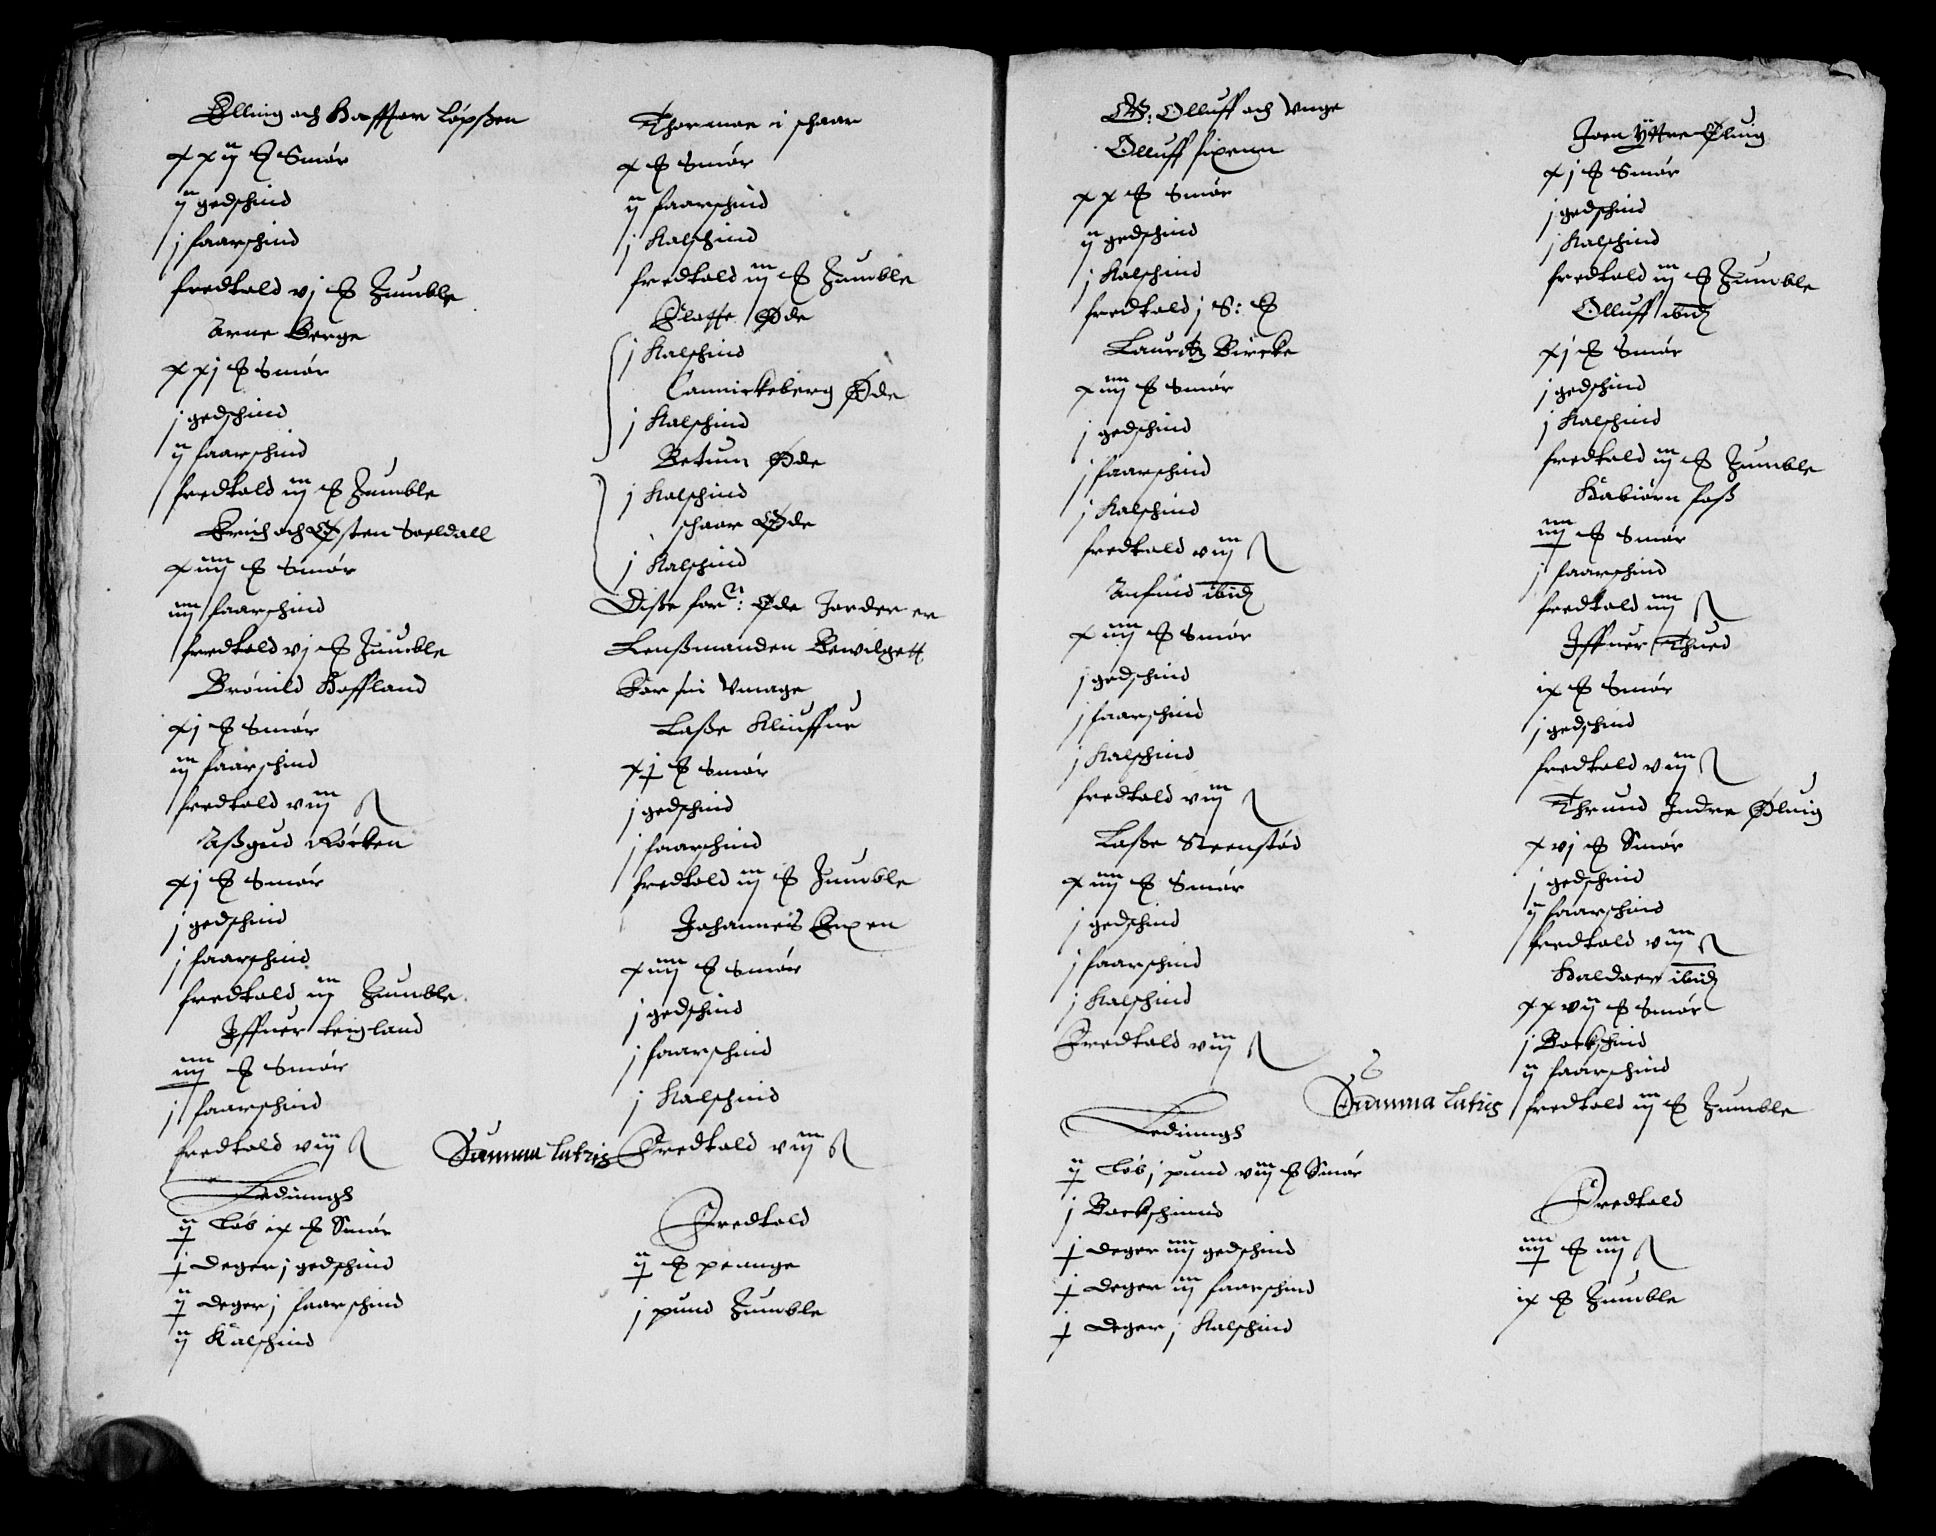 Elling och Haffuor Løpßen
xxij ℔ Smør
ij gedschind
j faarschind
fredtold vj ℔ Humble
Arne Berge
xxj ℔ Smør
j gedschind
ij faarschind
fredtold iij ℔ Humble
Erich och Østen Soeldall
xiiij ℔ Smør
iiij faarschind
fredtold vj ℔ Humble
Brønild Hoffland
xj ℔ Smør
iij faarschind
fredtold viij ß
Aßgud Røcken
xj ℔ Smør
j gedschind
j faarschind
fredtold iij Humble
Iffuer Leigland
iiij ℔ Smør
j faarschind
fredtold viij ß
Ledinngh
ij Løb ix ℔ Smør
j deger j gedschind
ij deger j faarschind
ij Kalschind
Thormoe i schaar
x ℔ Smør
ij faarschind
j Kalschind
fredtold iij ℔ Humble
Øde
j Kalschind
Cannickeberg Øde
j Kalschind
Betum Øde
j Kalschind
schaar Øde
j Kalschind
Disße for: Øde Jorder er
Lenßmanden Bewilgett
For sin Vmage
Laße Kliuffue
xj ℔ Smør
j gedschind
j faarschind
fredtold iij ℔ Humble
Johannes
xiiij ℔ Smør
j gedschind
j faarschind
j Kalschind
Summa Latris Fredtold viij ß
Fredtold
ij ℔ penge
j pund Humble
G: Olluff och Vnge
Olluff sixenn
xx ℔ Smør
ij gedschind
j Kalschind
fredtold j S: ℔
Lauritz Bircke
xiiij ℔ Smør
j gedschind
j faarschind
j Kalschind
fredtold viij ß
Anfind ibid
xiiij ℔ Smør
j gedschind
j faarschind
j Kalschind
fredtold viij ß
Laße Steenstød
xiiij ℔ Smør
j gedschind
j faarschind
j Kalschind
Fredtold viij ß
Summa Latris
Ledinngh
ij Løb j pund viij ℔ Smør
j Bockschinnd
j deger iiij gedschind
j deger iij faarschind
j deger j Kalschind
Joen Yttre Øluig
xj ℔ Smør
j gedschind
j Kalschind
fredtold iij ℔ Humble
Olluff ibid
xj ℔ Smør
j gedschind
j Kalschind
fredtold iij ℔ Humble
Habiørn saß
iiij ℔ Smør
j faarschind
fredtold iiij ß
Iffuer Thued
ix ℔ Smør
j gedschind
fredtold viij ß
Thrund Indre Øluig
xvj ℔ Smør
j gedschind
ij faarschind
fredtold viij ß
Haldaer ibid
xxvij ℔ Smør
j Bockschind
ij faarschind
fredtold iij ℔ Humble
Fredtold
iiij ℔ iiij ß
ix ℔ Humble